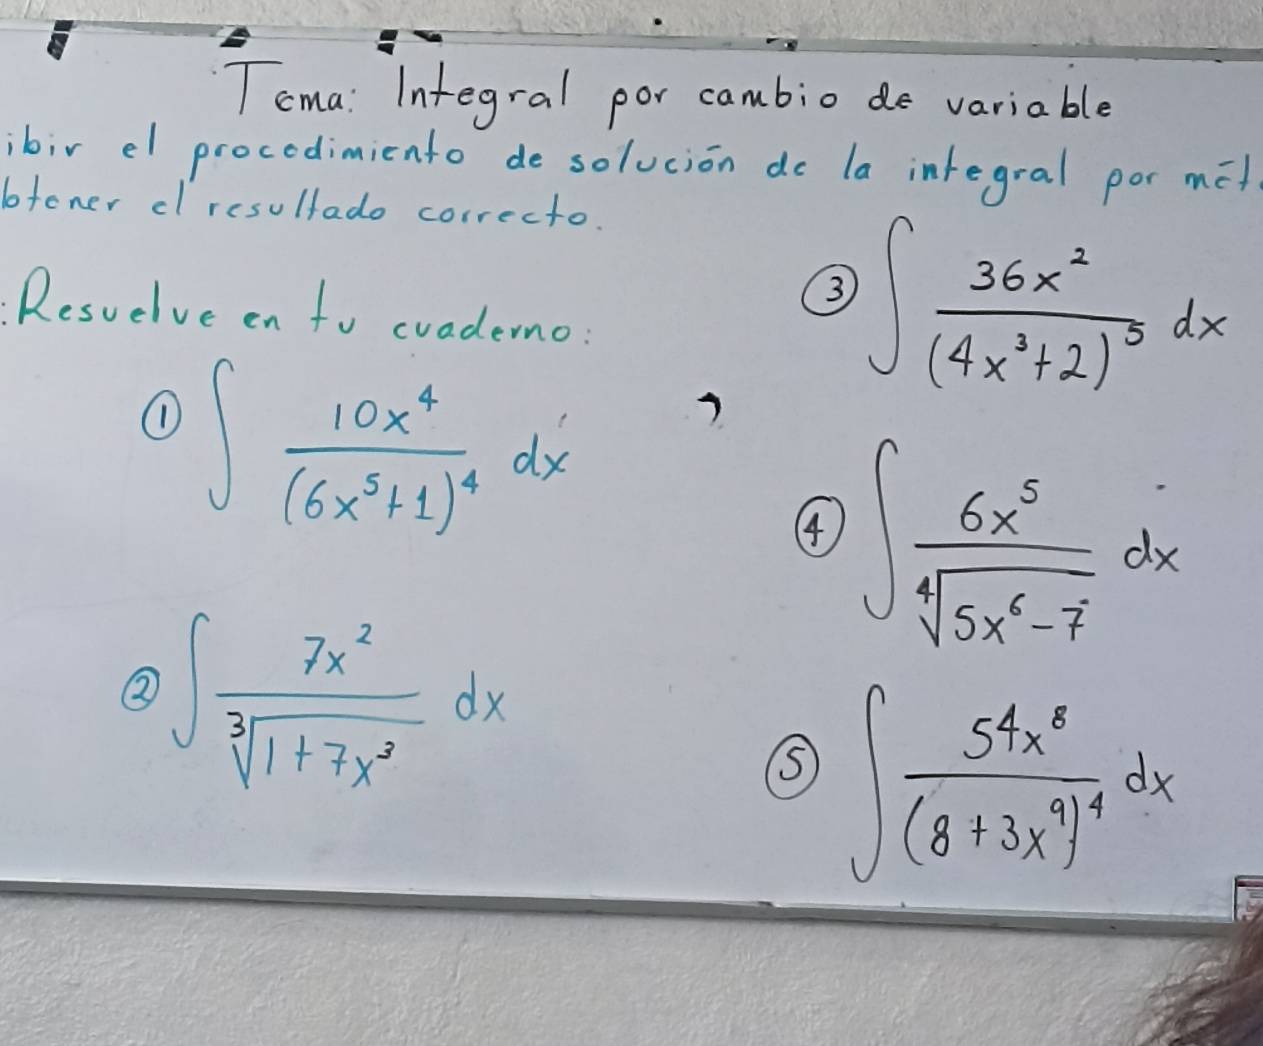 Tema: Integral por cambio de variable
ibir el procedimiento de solución de la integral por mét
btener el resultado correcto.
: Resuelve en tu cuaderno:
① ∫ 10x⁴ / (6x⁵+1)⁴ dx
② ∫ 7x² / ∛(1+7x³) dx
③ ∫ 36x² / (4x³+2)⁵ dx
④ ∫ 6x⁵ / ∜(5x⁶-7) dx
⑤ ∫ 54x⁸ / (8+3x⁹)⁴ dx